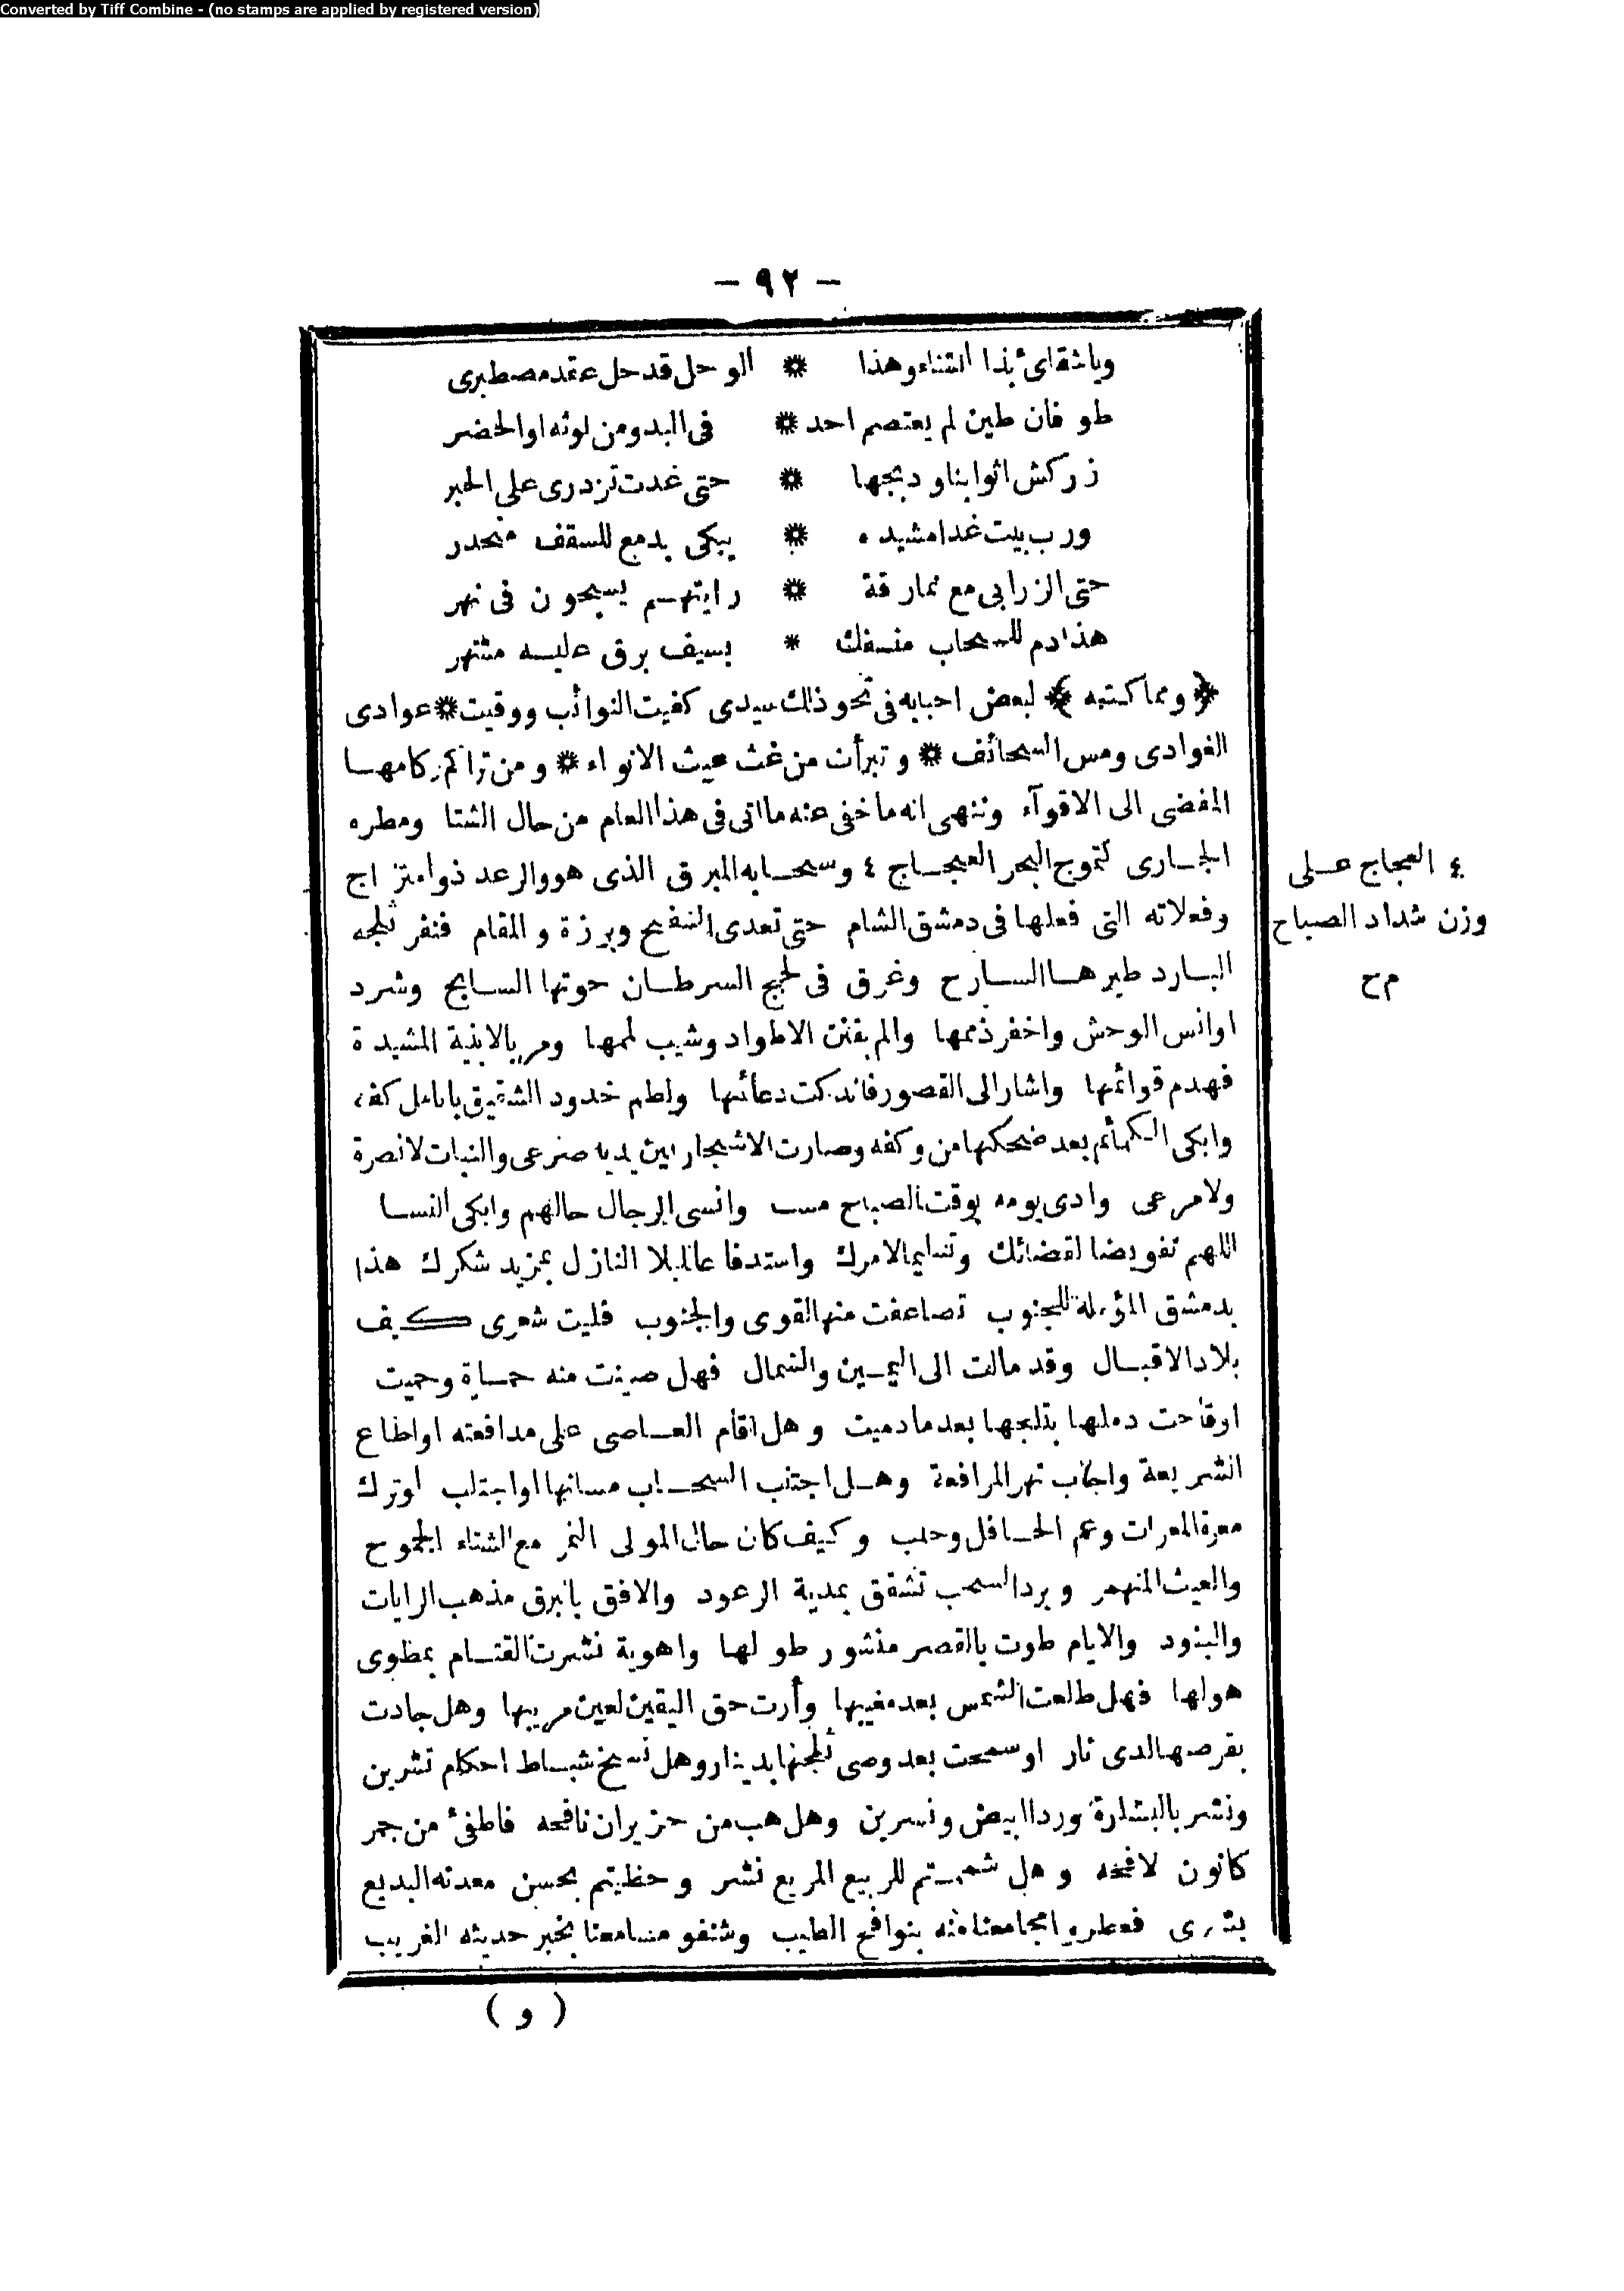 Converted by Tiff Combine - (no stamps are applied by registered version)
– ٩٢ –
وباشقاى بذا الشتاء وهذا * الوحل قد حل عقد مصطبرى
طوفان طين لم يعتصم احد * فى البدو من لوثه اوالحضر
زركش اثوابنا ودبجها * حتى غدت تزدرى على الحبر
ورب بيت غدا مشيده * يبكى بدمع للسقف منحدر
حتى الزرابى مع نمارقة * رايتهم يسبحون فى نهر
هذا دم للسحاب منسفك * بسيف برق عليه مشتهر
﴿ ومما كتبه ﴾ لبعض احبابه فى نحو ذلك سيدى كفيت النوائب ووقيت * عوادى
الغوادى ومس السحائف * وتبرأت من غث عيث الانواء * ومن تراكم ركامها
المفضى الى الاقوآء وننهى انه ما خفى عنه ما اتى فى هذا العام من حال الشتا ومطره
الجارى كتموج البحر العجاج ٤ وسحابه المبرق الذى هو والرعد ذوامتزاج
وفعلاته التى فعلها فى دمشق الشام حتى تعدى السفح وبرزة والمقام فنفر ثلجه
البارد طيرها السارح وغرق فى لجج السرطان حوتها السابح وشرد
اوانس الوحش واخفر ذممها والم بقنن الاطواد وشيب لممها ومر بالابنية المشيدة
فهدم قوائمها واشار الى القصور فاندكت دعائمها ولطم خدود الشقيق بانامل كفه
وابكى الكمائم بعد ضحكها من وكفه وصارت الاشجار بين يديه صرعى والنبات لانصرة
ولا مرعى وادى يومه بوقت الصباح مسا وانسى الرجال حالهم وابكى النسا
اللهم تفويضا لقضائك وتسليما لامرك واستدفاعا للبلا النازل بمزيد شكرك هذا
بدمشق المؤملة للجنوب تصاعفت منها القوى والجنوب فليت شعرى كيف
بلاد الاقبال وقد مالت الى اليمين والشمال فهل صينت منه حماة وحميت
اوقاحت دملها بثلجها بعد ما دميت وهل اقام العاصى على مدافعته او اطاع
الشريعة واجاب نهر المرافعة وهل اجتنب السحاب مسانها او اجتلب اوترك
معرة المعرات وعم الحافل وحلب وكيف كان حال المولى النمر مع الشتاء الجموح
والعيث المنهمر وبرد السحب تشقق بمدية الرعود والافق بالبرق مذهب الرايات
والبنود والايام طوت بالقصر منشور طولها واهوية نشرت القتام بمطوى
هولها فهل طلعت الشمس بعد مغيبها وأرت حق اليقين لعين مريبها وهل جادت
بقرصها لدى نار اوسمحت بعد وصى ثلجها بدينار وهل نسخ شباط احكام تشرين
ونشر بالبشارة وردا ابيض ونسرين وهل هب من حزيران نافحه فاطفئ من جمر
كانون لافحه وهل شممتم للربيع المربع نشر وحظيتم بحسن معدنه البديع
بشرى فعطروا مجامعنا منه بنوافح الطيب وشنفو مسامعنا بخبر حديثه الغريب
( و )
٤ العجاج على
وزن شداد الصباح
م ح